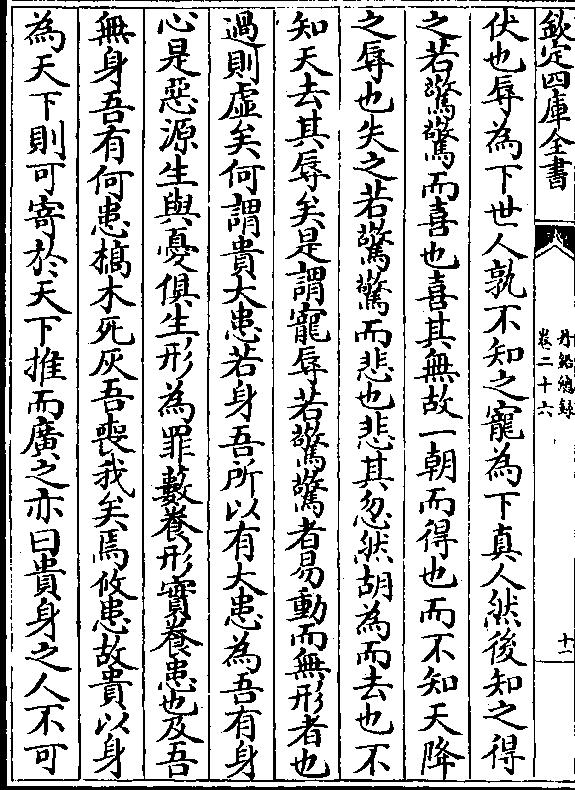 欽定四庫全書
丹鉛總錄
卷二十六
十一
伏也辱為下世人孰不知之寵為下真人然後知之得
之若驚驚而喜也喜其無故一朝而得也而不知天降
之辱也失之若驚驚而悲也悲其忽然胡為而去也不
知天去其辱矣是謂寵辱若驚驚者易動而無形者也
過則虛矣何謂貴大患若身吾所以有大患為吾有身
心是惡源生與憂俱生形為罪藪養形實養患也及吾
無身吾有何患槁木死灰吾喪我矣焉攸患故貴以身
為天下則可寄於天下推而廣之亦曰貴身之人不可